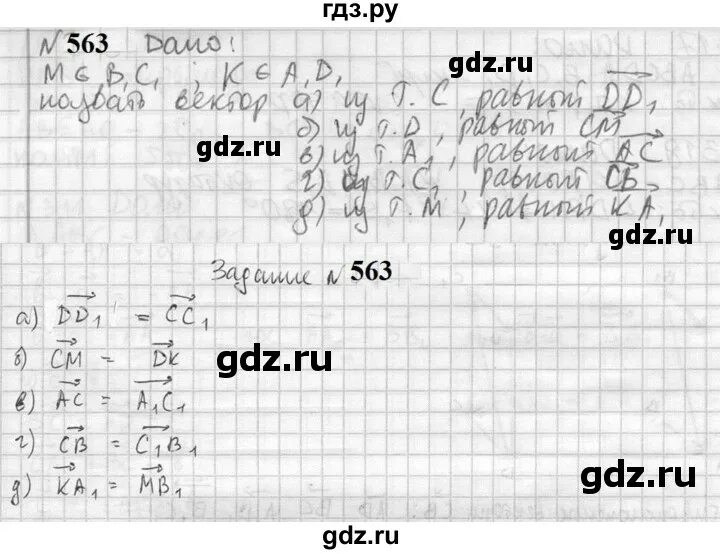 гдз.ру
№ 563 Дано:
M ∈ B₁C₁ ; K ∈ A₁D₁
назвать вектор а) из т. C, равный DD₁
б) из т. D, равный CM
в) из т. A₁, равный AC
г) из т. C₁, равный CB,
д) из т. M, равный KA₁
gdz.ru
gdz.ru
Задание № 563
а) DD₁ = CC₁
б) CM = DK
в) AC = A₁C₁
г) CB = C₁B₁
д) KA₁ = MB₁
gdz.ru
gdz.ru
gdz.ru